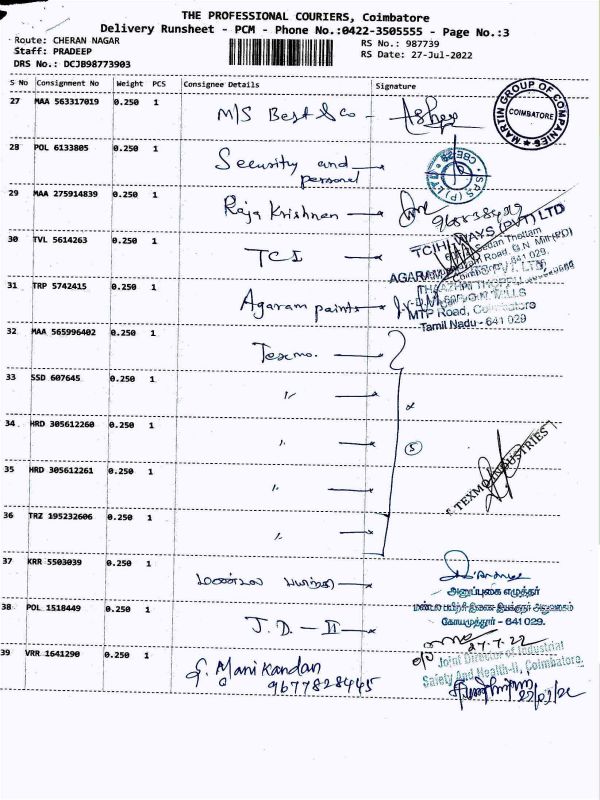 THE PROFESSIONAL COURIERS, Coimbatore
Delivery Runsheet - PCM - Phone No.:0422-3505555 - Page No.:3
Route: CHERAN NAGAR
RS No.: 987739
Staff: PRADEEP
RS Date: 27-Jul-2022
DRS No.: DCJB98773903
S No Consignment No Weight PCS Consignee Details Signature
27 MAA 563317019 0.250 1 M/S Best & Co -
MARTIN GROUP OF COMPANIES
COIMBATORE
28 POL 6133805 0.250 1 Security and
personel
29 MAA 275914839 0.250 1 Raja Krishnan
30 TVL 5614263 0.250 1 TCI
TCIHI WAYS (PVT) LTD
31 TRP 5742415 0.250 1 Agaram paints
MTP Road, Coimbatore
Tamil Nadu - 641 029
32 MAA 565996402 0.250 1 Texmo.
33 SSD 607645 0.250 1 "
34 HRD 305612260 0.250 1 "
5
35 HRD 305612261 0.250 1 "
TEXMO INDUSTRIES
36 TRZ 195232606 0.250 1 "
37 KRR 5503039 0.250 1
அனுப்புகை எழுத்தர்
மண்டல பயிற்சி இணை இயக்குநர் அலுவலகம்
கோயமுத்தூர் - 641 029.
38 POL 1518449 0.250 1 J.D - II
27.7.22
Joint Director of Industrial
Safety And Health-II, Coimbatore.
39 VRR 1641290 0.250 1 S. Manikandan
9677828445